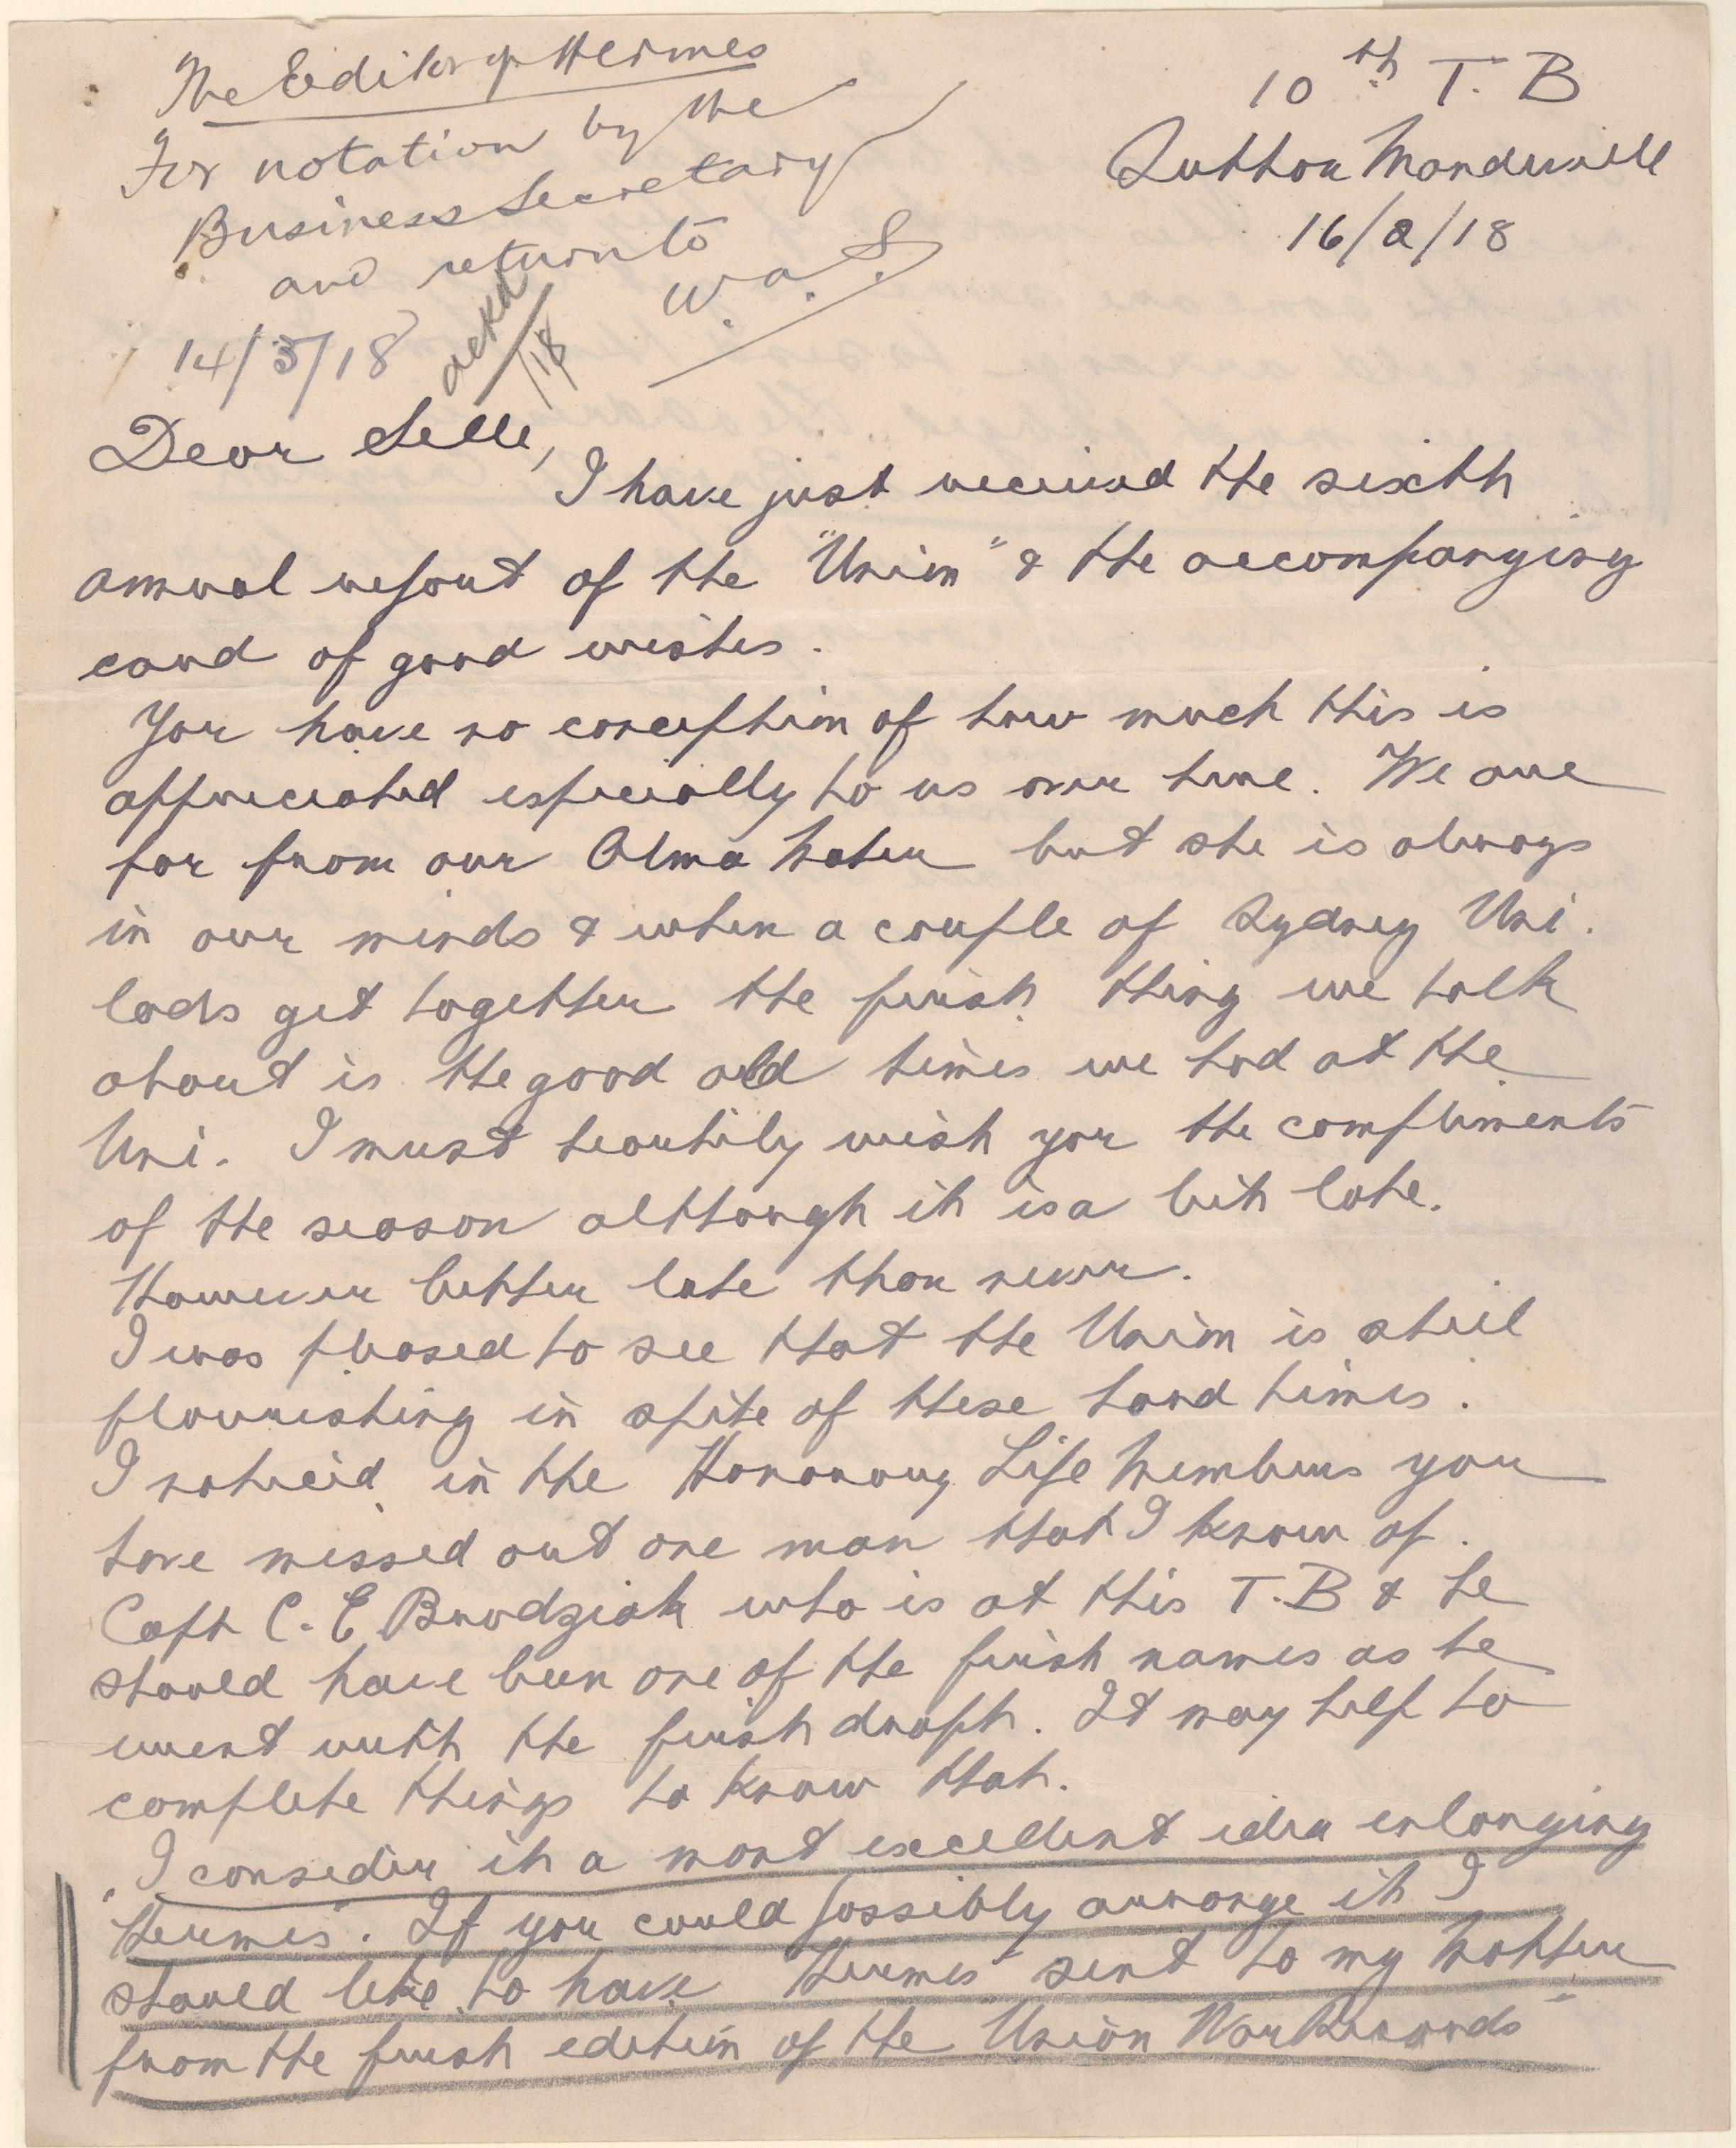 The Editor of Hermes
For notation by the
Business Secretary
and return to
W.A.S.
14/3/18
ackd
/18
10th T. B
Sutton Mandeville
16/2/18
Dear Selle,
I have just received the sixth
annual report of the "Union" & the accompanying
card of good wishes.
You have no conception of how much this is
appreciated especially to us over here. We are
far from our Alma Mater but she is always
in our minds & when a couple of Sydney Uni.
lads get together the first thing we talk
about is the good old times we had at the
Uni. I must heartily wish you the compliments
of the season although it is a bit late.
However better late than never.
I was pleased to see that the Union is still
flourishing in spite of these hard times.
I noticed in the Honorary Life Members you
have missed out one man that I know of.
Capt C. E Brodziak who is at this T.B & he
should have been one of the first names as he
went with the first draft. It may help to
complete things to know that.
I consider it a most excellent idea enlarging
"Hermes". If you could possibly arrange it I
should like to have "Hermes" sent to my Mother
from the first edition of the "Union War Records"